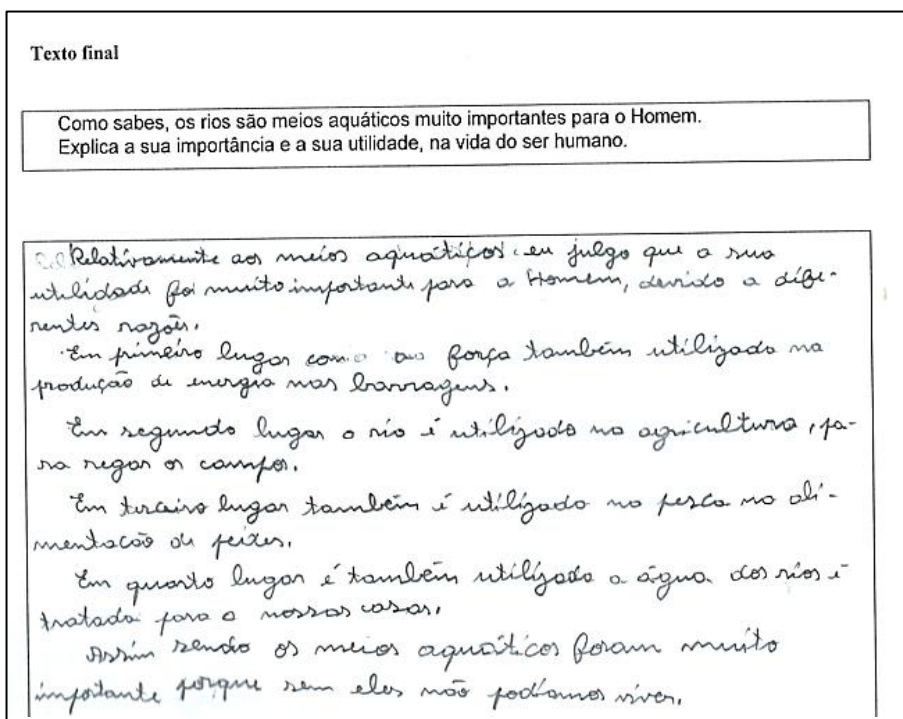 Texto final
Como sabes, os rios são meios aquáticos muito importantes para o Homem.
Explica a sua importância e a sua utilidade, na vida do ser humano.
Relativamente aos meios aquáticos eu julgo que a sua
utilidade foi muito importante para o Homem, devido a dife-
rentes razões.
Em primeiro lugar como força também utilizada na
produção de energia nas barragens.
Em segundo lugar o rio é utilizado na agricultura, pa-
ra regar os campos.
Em terceiro lugar também é utilizado na pesca na ali-
mentacão de peixes.
Em quarto lugar é também utilizado a água dos rios é
tratada para a nossas casas.
Assim sendo os meios aquáticos foram muito
importante porque sem eles não podíamos viver.